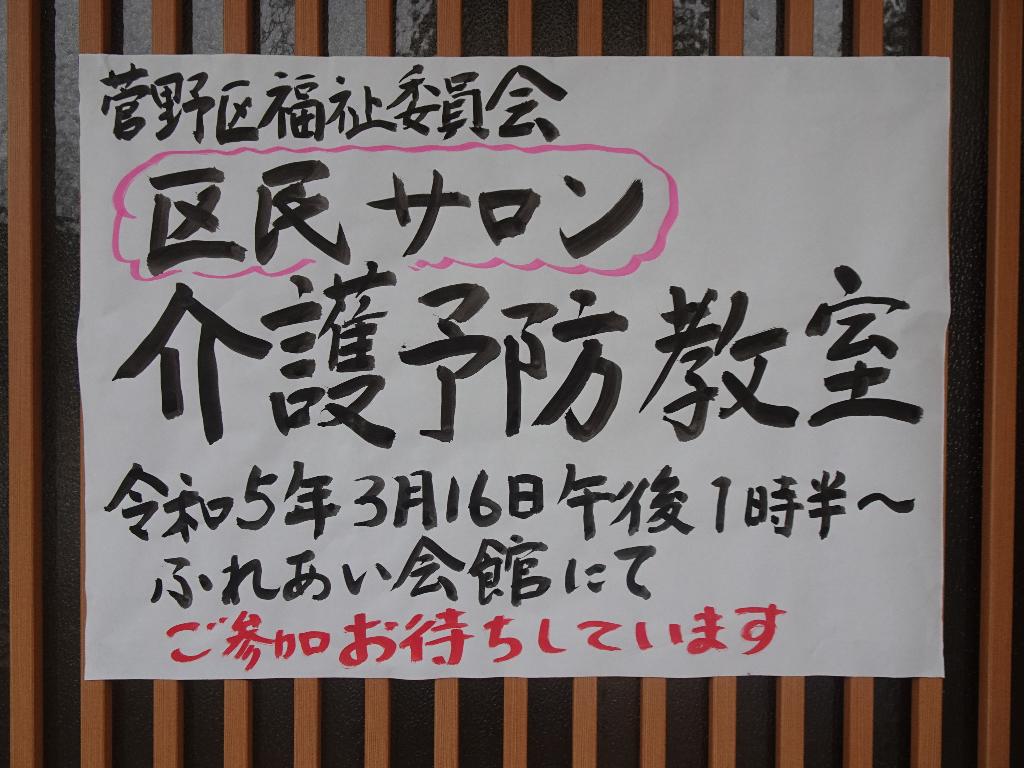 菅野区福祉委員会
区民サロン
介護予防教室
令和5年3月16日午後1時半～
ふれあい会館にて
ご参加お待ちしています